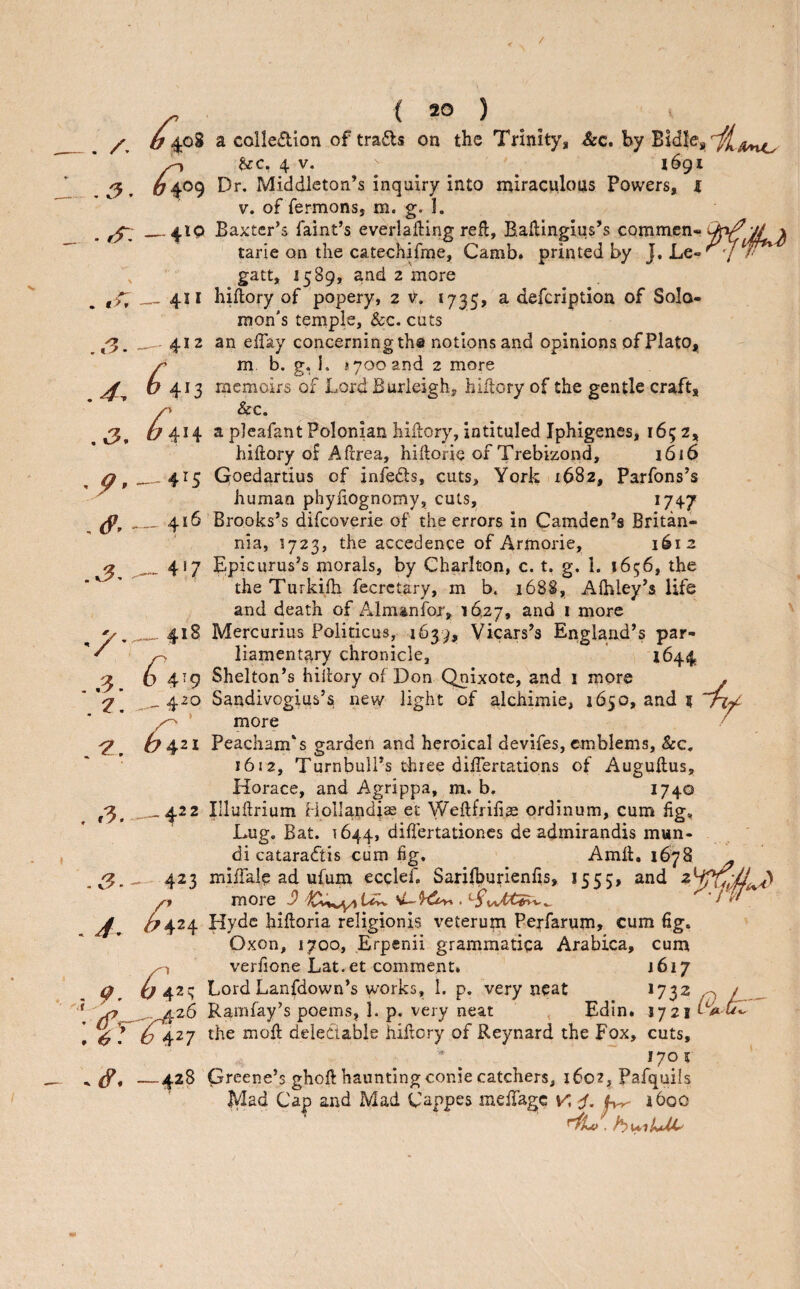 ( 20 )
. 1. 6 408 a collection of tracts on the Trinity, &c. by Bidle,
&c. 4 v. 1691
. 3. 6 409 Dr. Middleton's inquiry into miraculous Powers, 1
v. of sermons, m. g. l.
. 5. — 410 Baxter's saint's everlasting rest, Bastingius's commen-
tarie on the catechisme, Camb. printed by J. Le-
gatt, 1589, and 2 more
. 5. — 411 history of popery, 2 v. 1735, a description of Solo-
mon's temple, &c. cuts
. 3. — 412 an essay concerning the notions and opinions of Plato,
m. b. g. l. 1700 and 2 more
. 4. 6 413 memoirs of Lord Burleigh, history of the gentle craft,
&c.
. 3. 6 414 a pleasant Polonian history, intituled Iphigenes, 1652,
history of Astrea, historie of Trebizond, 1616
. 9. — 415 Goedartius of insects, cuts, York 1682, Parsons's
human physiognomy, cuts, 1747
. 8. — 416 Brooks's discoverie of the errors in Camden's Britan-
nia, 1723, the accedence of Armorie, 1612
. 3. — 417 Epicurus's morals, by Charlton, c. t. g. l. 1656, the
the Turkish secretary, m b. 1688, Ashley's life
and death of Almansor, 1627, and 1 more
— 418 Mercurius Politicus, 1639, Vicars's England's par-
liamentary chronicle, 1644
. 3. 6 419 Shelton's history of Don Quixote, and 1 more
. 2. — 420 Sandivogius's new light of alchimie, 1650, and 1
more
. 2. 6 421 Peacham's garden and heroical devises, emblems, &c.
1612, Turnbull's three dissertations of Augustus,
Horace, and Agrippa, m. b. 1740
. 3. — 422 Illustrium Hollandiæ et Westfrisiæ ordinum, cum fig.
Lug. Bat. 1644, dissertationes de admirandis mun-
di cataractis cum fig. Amst. 1678
. 3. — 423 missale ad usum ecclef. Sarisburiensis, 1555, and 2
more
. 4. 6 424 Hyde historia religionis veterum Persarum, cum fig.
Oxon, 1700, Erpenii grammatica Arabica, cum
versione Lat. et comment. 1617
. 9. 6 425 Lord Lansdown's works, l. p. very neat 1732
— 426 Ramsay's poems, l. p. very neat Edin. 1721
. 6. 6 427 the most delectable history of Reynard the Fox, cuts,
1701
. 8. — 428 Greene's ghost haunting conie catchers, 1602, Pasquils
Mad Cap and Mad Cappes message 1600